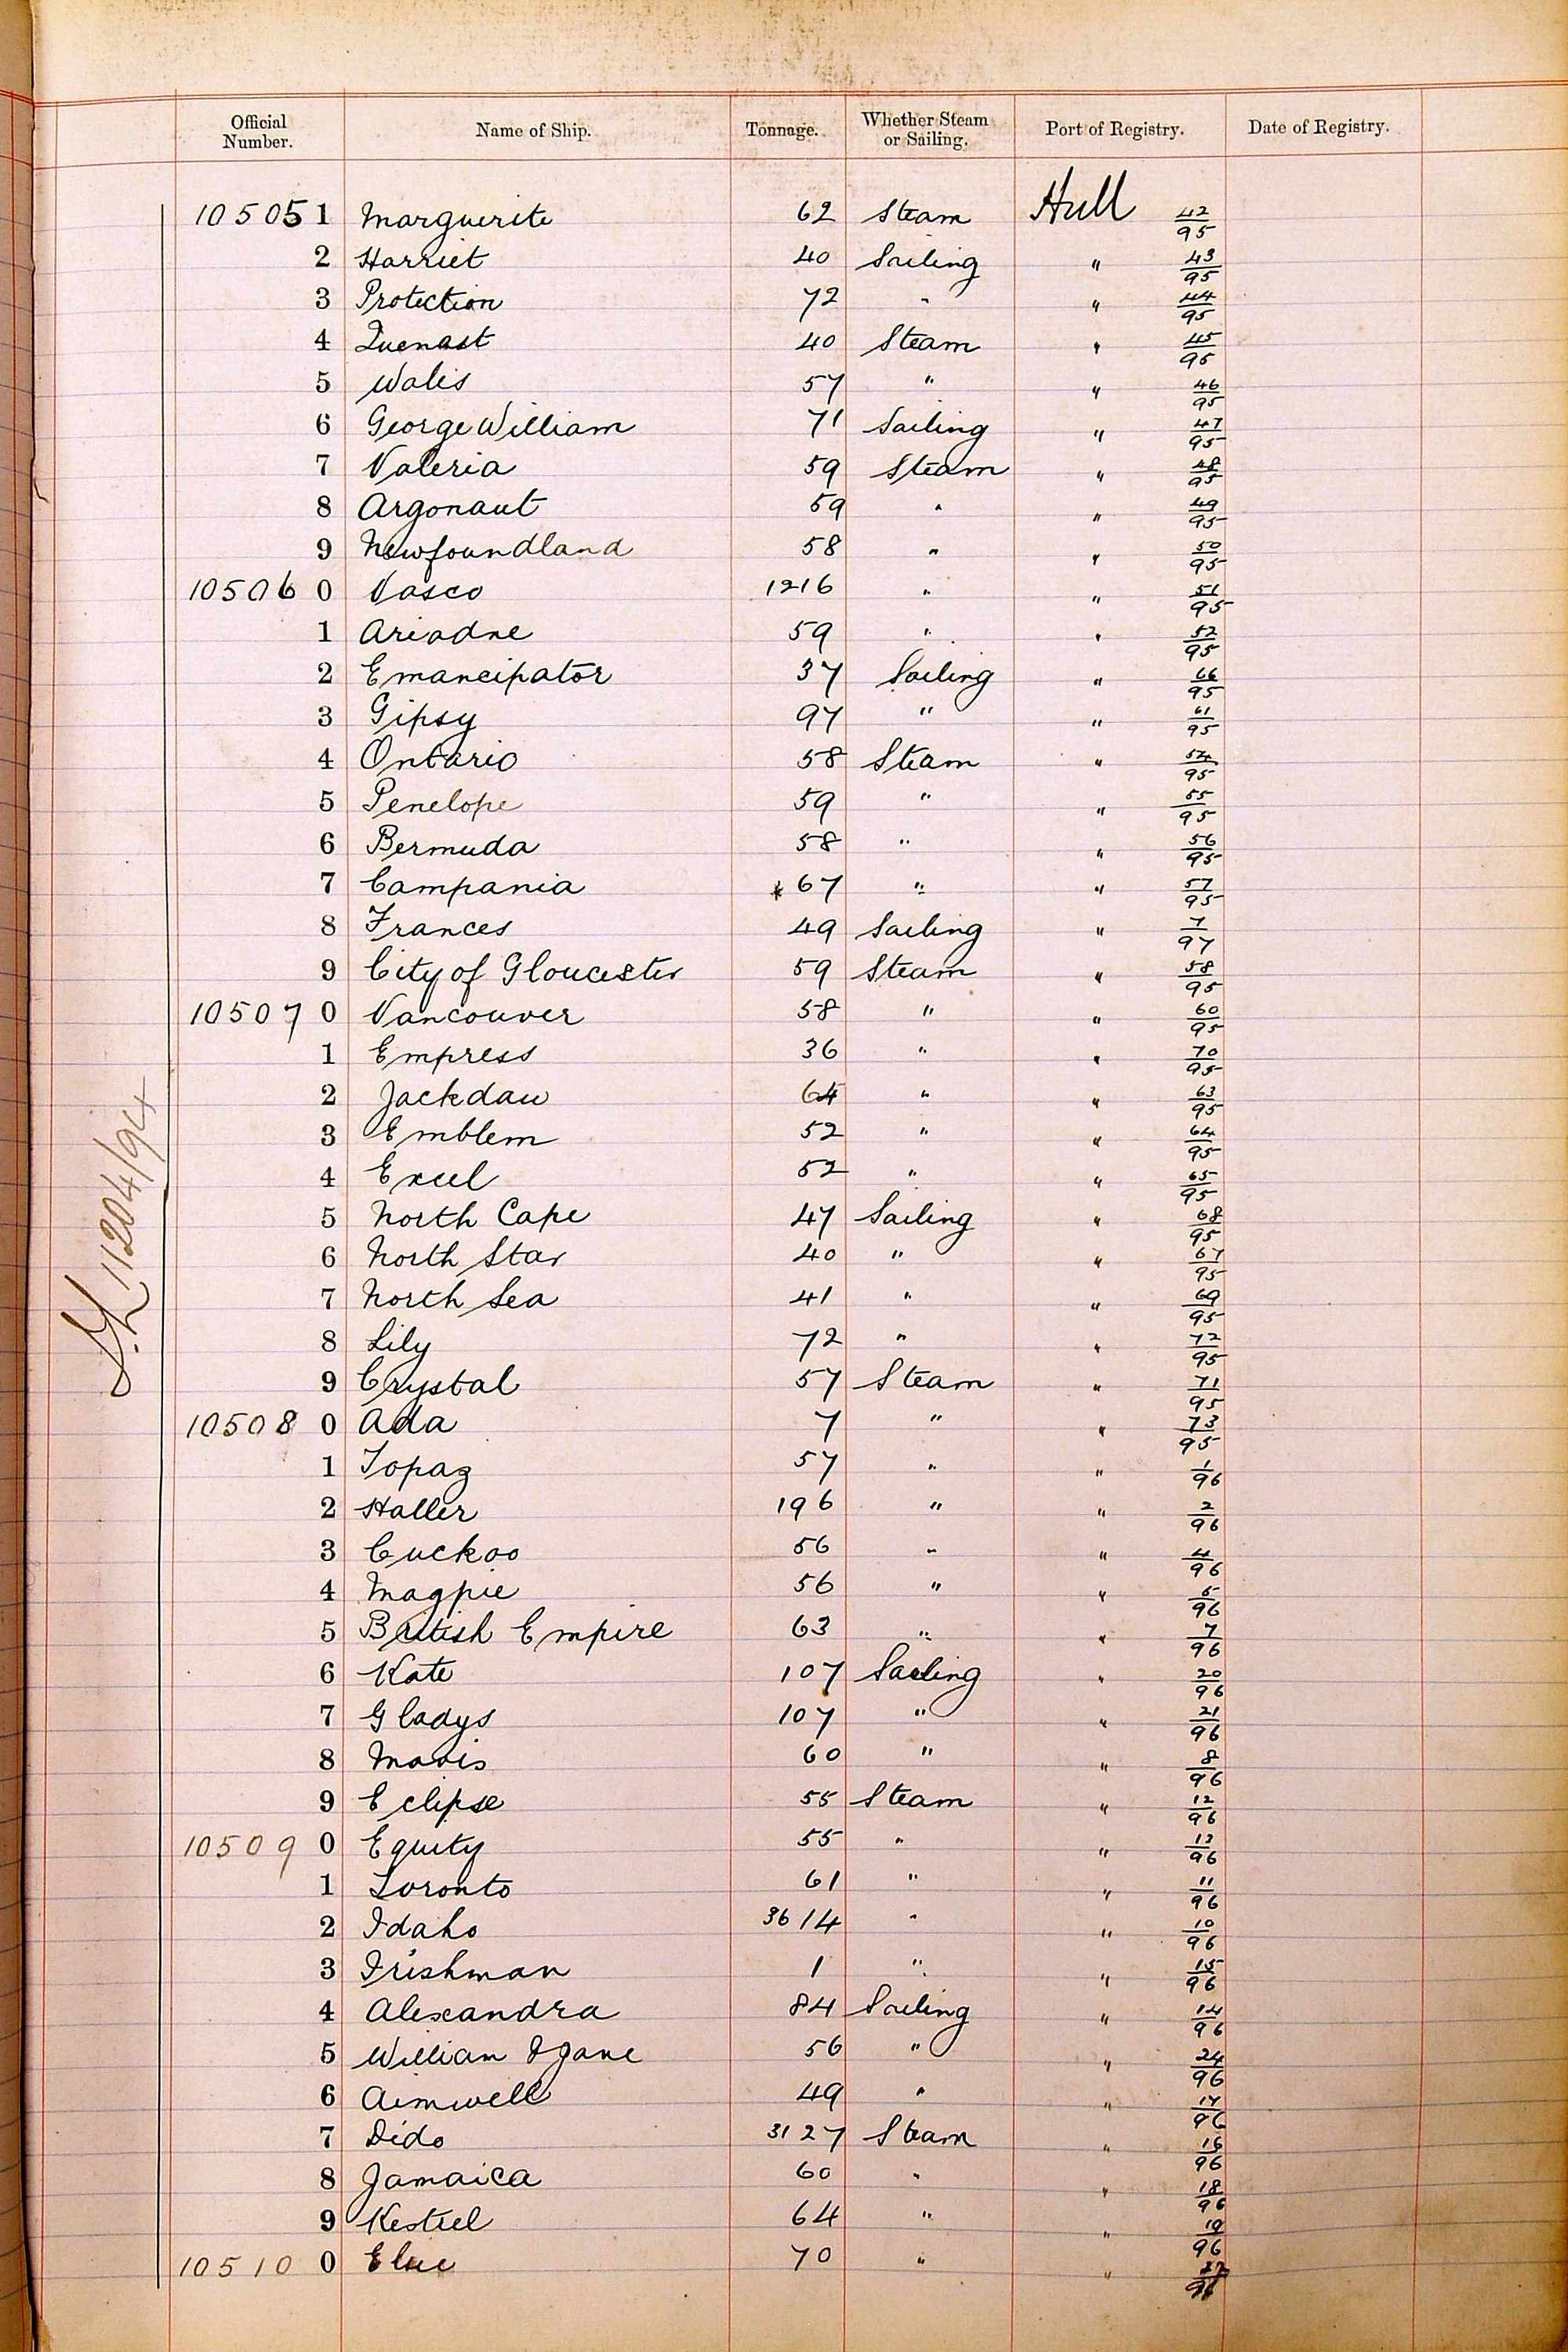 Official Number. Name of Ship. Tonnage. Whether Steam or Sailing. Port of Registry. Date of Registry.
105051 Marguerite 62 Steam Hull 42/95
2 Harriet 40 Sailing " 43/95
3 Protection 72 " " 44/95
4 Quenast 40 Steam " 45/95
5 Wales 57 " " 46/95
6 George William 71 Sailing " 47/95
7 Valeria 59 Steam " 48/95
8 Argonaut 59 " " 49/95
9 Newfoundland 58 " " 50/95
105060 Vasco 1216 " " 51/95
1 Ariadne 59 " " 52/95
2 Emancipator 37 Sailing " 66/95
3 Gipsy 97 " " 61/95
4 Ontario 58 Steam " 54/95
5 Penelope 59 " " 55/95
6 Bermuda 58 " " 56/95
7 Campania 67 " " 57/95
8 Frances 49 Sailing " 7/97
9 City of Gloucester 59 Steam " 58/95
105070 Vancouver 58 " " 60/95
1 Empress 36 " " 70/95
2 Jackdaw 64 " " 63/95
3 Emblem 52 " " 64/95
4 Excel 52 " " 65/95
5 North Cape 47 Sailing " 68/95
6 North Star 40 " " 67/95
7 North Sea 41 " " 69/95
8 Lily 72 " " 72/95
9 Crystal 57 Steam " 71/95
105080 Ada 7 " " 73/95
1 Topaz 57 " " 1/96
2 Haller 196 " " 2/96
3 Cuckoo 56 " " 4/96
4 Magpie 56 " " 5/96
5 British Empire 63 " " 7/96
6 Kate 107 Sailing " 20/96
7 Gladys 107 " " 21/96
8 Mavis 60 " " 8/96
9 Eclipse 55 Steam " 12/96
105090 Equity 55 " " 13/96
1 Toronto 61 " " 11/96
2 Idaho 3614 " " 10/96
3 Irishman 1 " " 15/96
4 Alexandra 84 Sailing " 14/96
5 William & Jane 56 " " 24/96
6 Aimwell 49 " " 17/96
7 Dido 3127 Steam " 16/96
8 Jamaica 60 " " 18/96
9 Kestrel 64 " " 19/96
105100 70 " "
11204/94